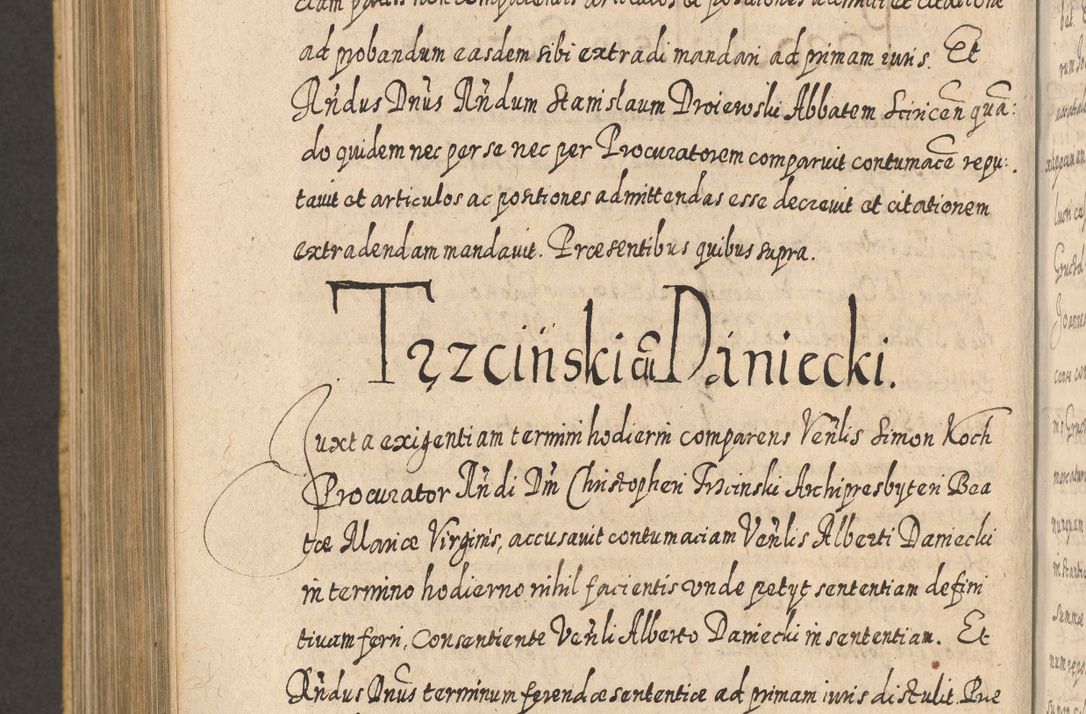 ad probandum easdem sibi extradi mandari ad primam iuris. Et
Rñdus Dnus Rñdum Stanislaum Droiewski Abbatem Sciricen̄ quā:
do quidem nec per se nec per Procuratorem comparuit contumacē repu:
tauit et articulos ac positiones admittendas esse decreuit et citationem
extradendam mandauit. Præsentibus quibus supra.
Trzciński cū Daniecki.
Juxta exigentiam termini hodierni comparens Veñlis Simon Koch
Procurator Rñdi Dm̄ Christopheri Trzcinski Archipresbyteri Bea
tæ Mariæ Virginis, accusauit contumaciam Veñlis Alberti Daniecki
in termino hodierno nihil facientis vnde petyt sententiam defini
tiuam ferri, consentiente Veñli Alberto Daniecki in sententiam. Et
Rñdus Dnus terminum ferendæ sententiæ ad primam iuris distulit. Præ